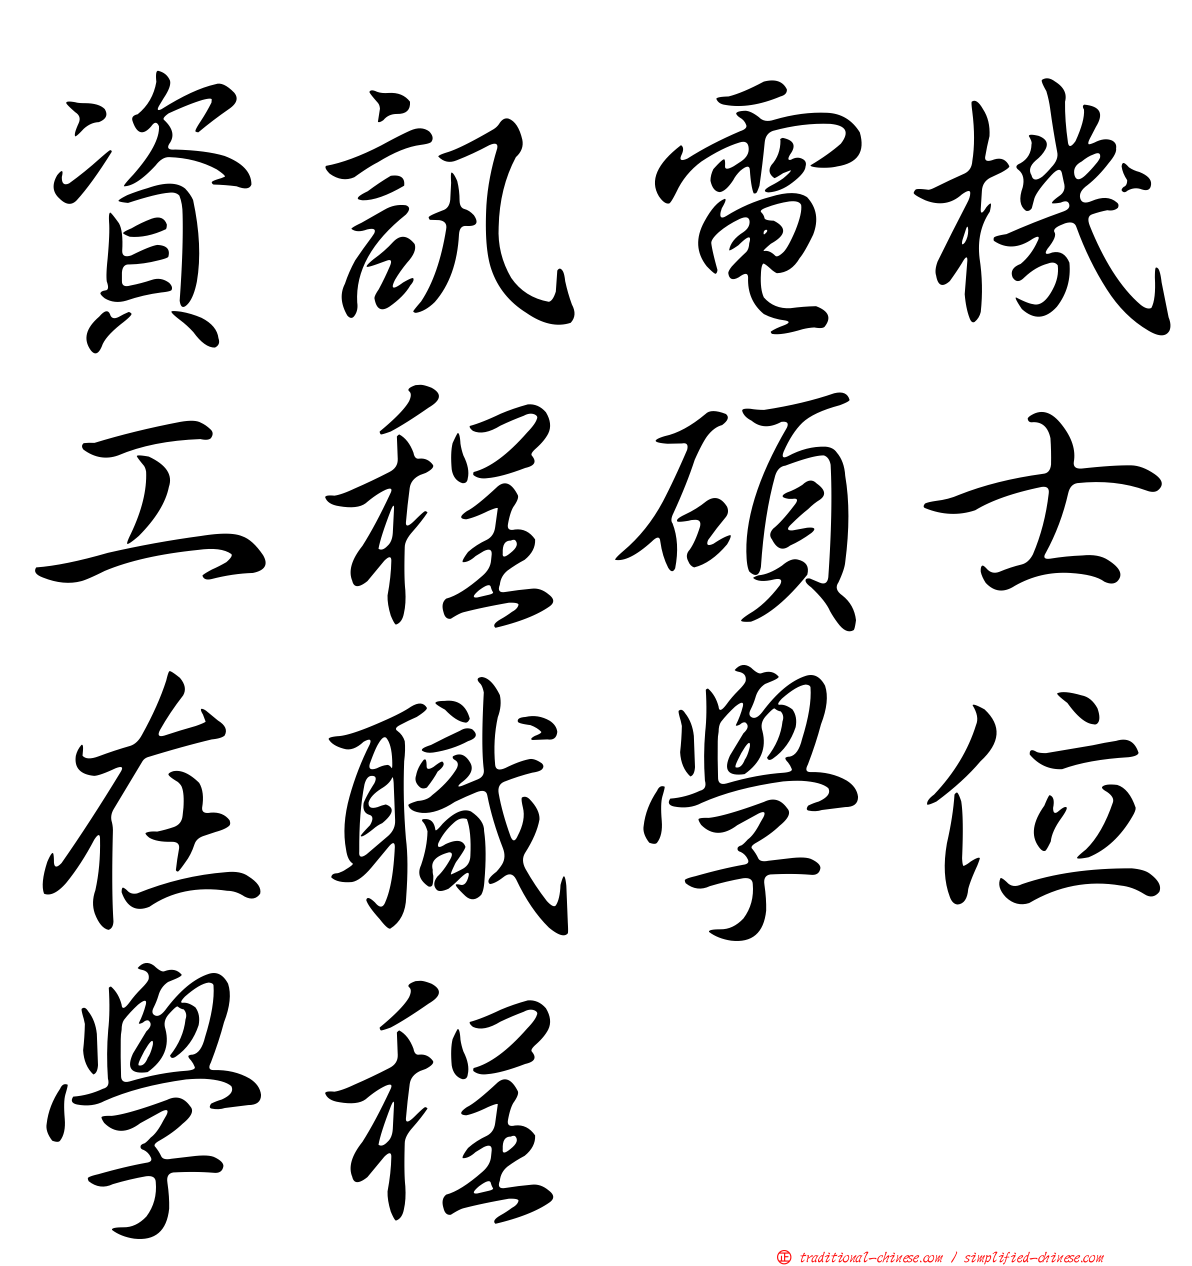 資訊電機
工程碩士
在職學位
學程
正 traditional-chinese.com / simplified-chinese.com